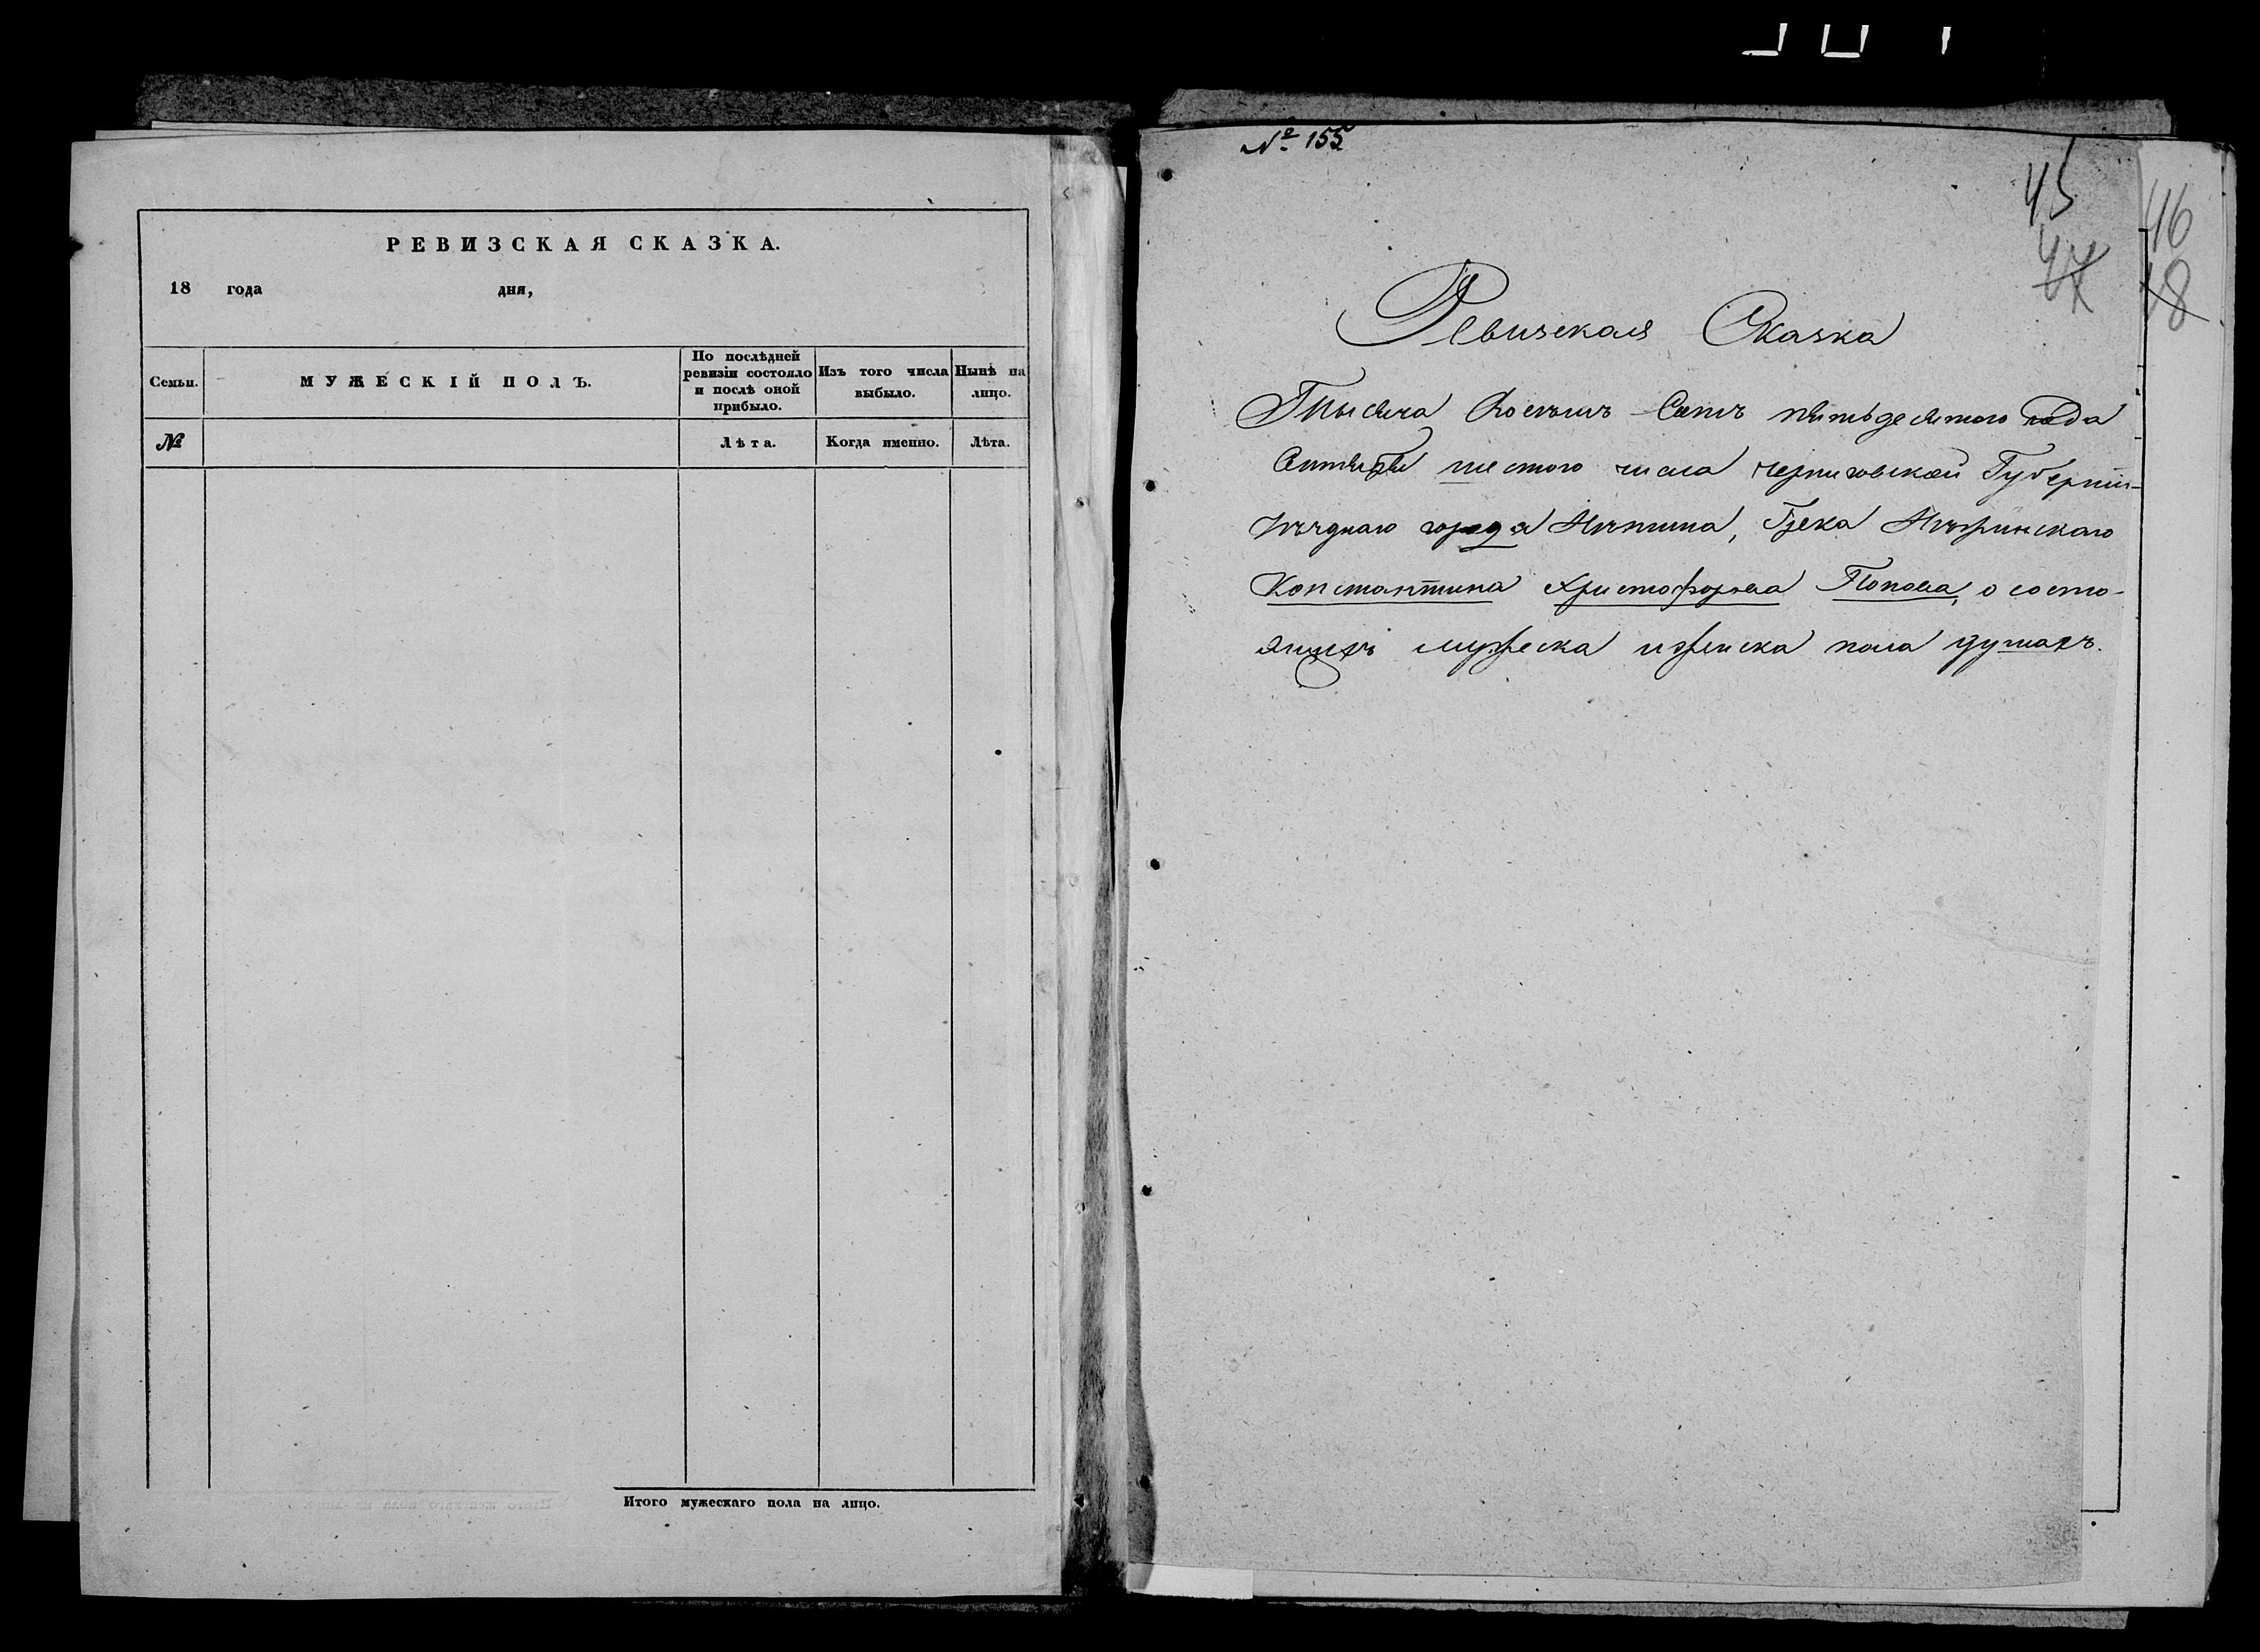 РЕВИЗСКАЯ СКАЗКА.
18 года дня,
Семьи.
МУЖЕСКІЙ ПОЛЪ.
По послѣдней
ревизіи состояло
и послѣ оной
прибыло.
Изъ того числа
выбыло.
Нынѣ на
лицо.
№
Лѣта.
Когда именно.
Лѣта.
Итого мужескаго пола на лицо.
№ 155
45
47
46
48
Ревизская Сказка
Тысяча Восемъ Сотъ пятьдесятого года
Сентября шестого числа Черниговской Губерніи
уѣзднаго города Нѣжина, Грека Нѣжинскаго
Константина Христофорова Попова, о состо-
ящихъ мужеска и женска пола душахъ.